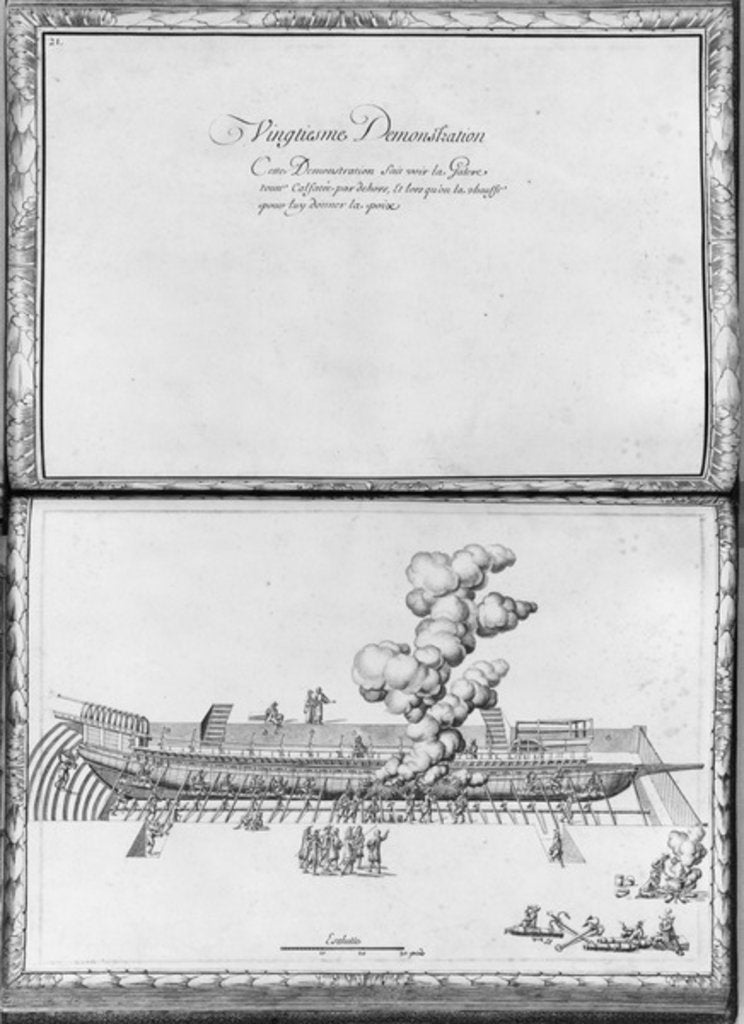 21.
Vingtiesme Demonstration
Cette Demonstration fait voir la Galere
toute Calfatée par dehors, et lors qu'on la chauffe
pour luy donner la poix
Eschelle
10 20 30 pieds